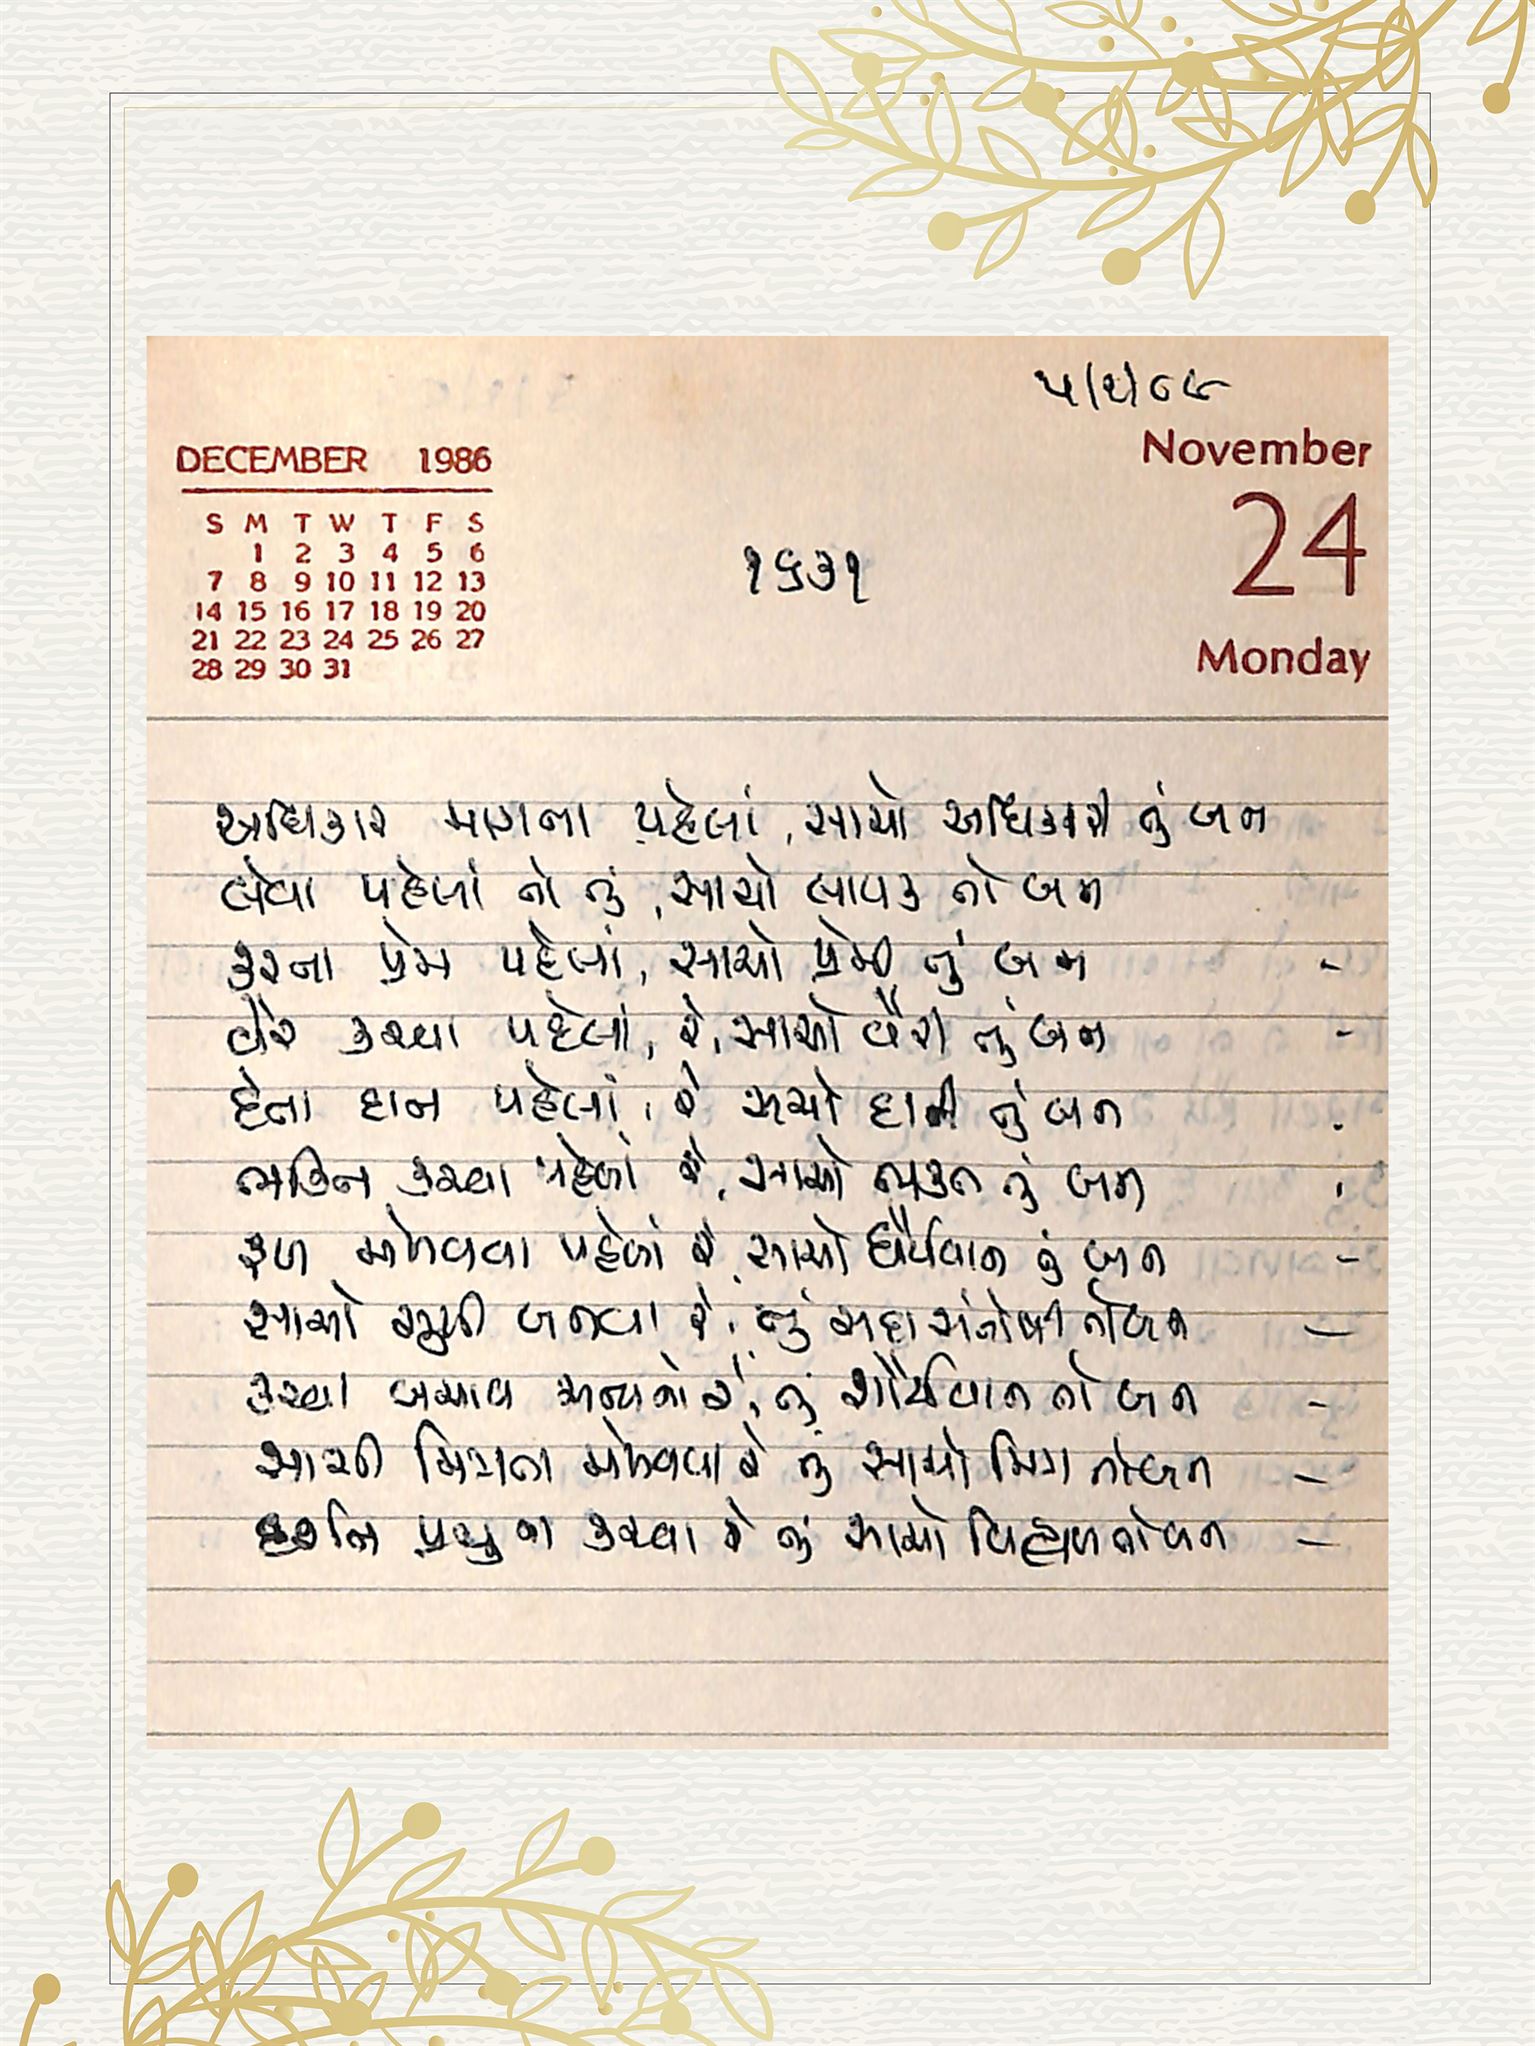 ૫/૨/૮૯
DECEMBER 1986
November
S M T W T F S
1 2 3 4 5 6
24
7 8 9 10 11 12 13
૧૬૩૧
14 15 16 17 18 19 20
21 22 23 24 25 26 27
Monday
28 29 30 31
અધિકાર માગતા પહેલાં, સાચો અધિકારી તું બન
લેવા પહેલાં તો તું, સાચો લાયક તો બન
કરતા પ્રેમ પહેલાં, સાચો પ્રેમી તું બન -
વૈર કરવા પહેલાં, રે, સાચો વૈરી તું બન -
દેતા દાન પહેલાં, રે સાચો દાની તું બન .
ભક્તિ કરવા પહેલાં રે, સાચો ભક્ત તું બન .
ફળ મેળવવા પહેલાં રે, સાચો ધૈર્યવાન તું બન -
સાચો સુખી બનવા રે, તું સદા સંતોષી તો બન -
કરવા બચાવ અન્યનો રે, તું શૌર્યવાન તો બન -
સાચી મિત્રતા મેળવવા રે તું સાચો મિત્ર તો બન -
પ્રભુના કરવા રે તું સાચો વિહ્વળ તો બન -